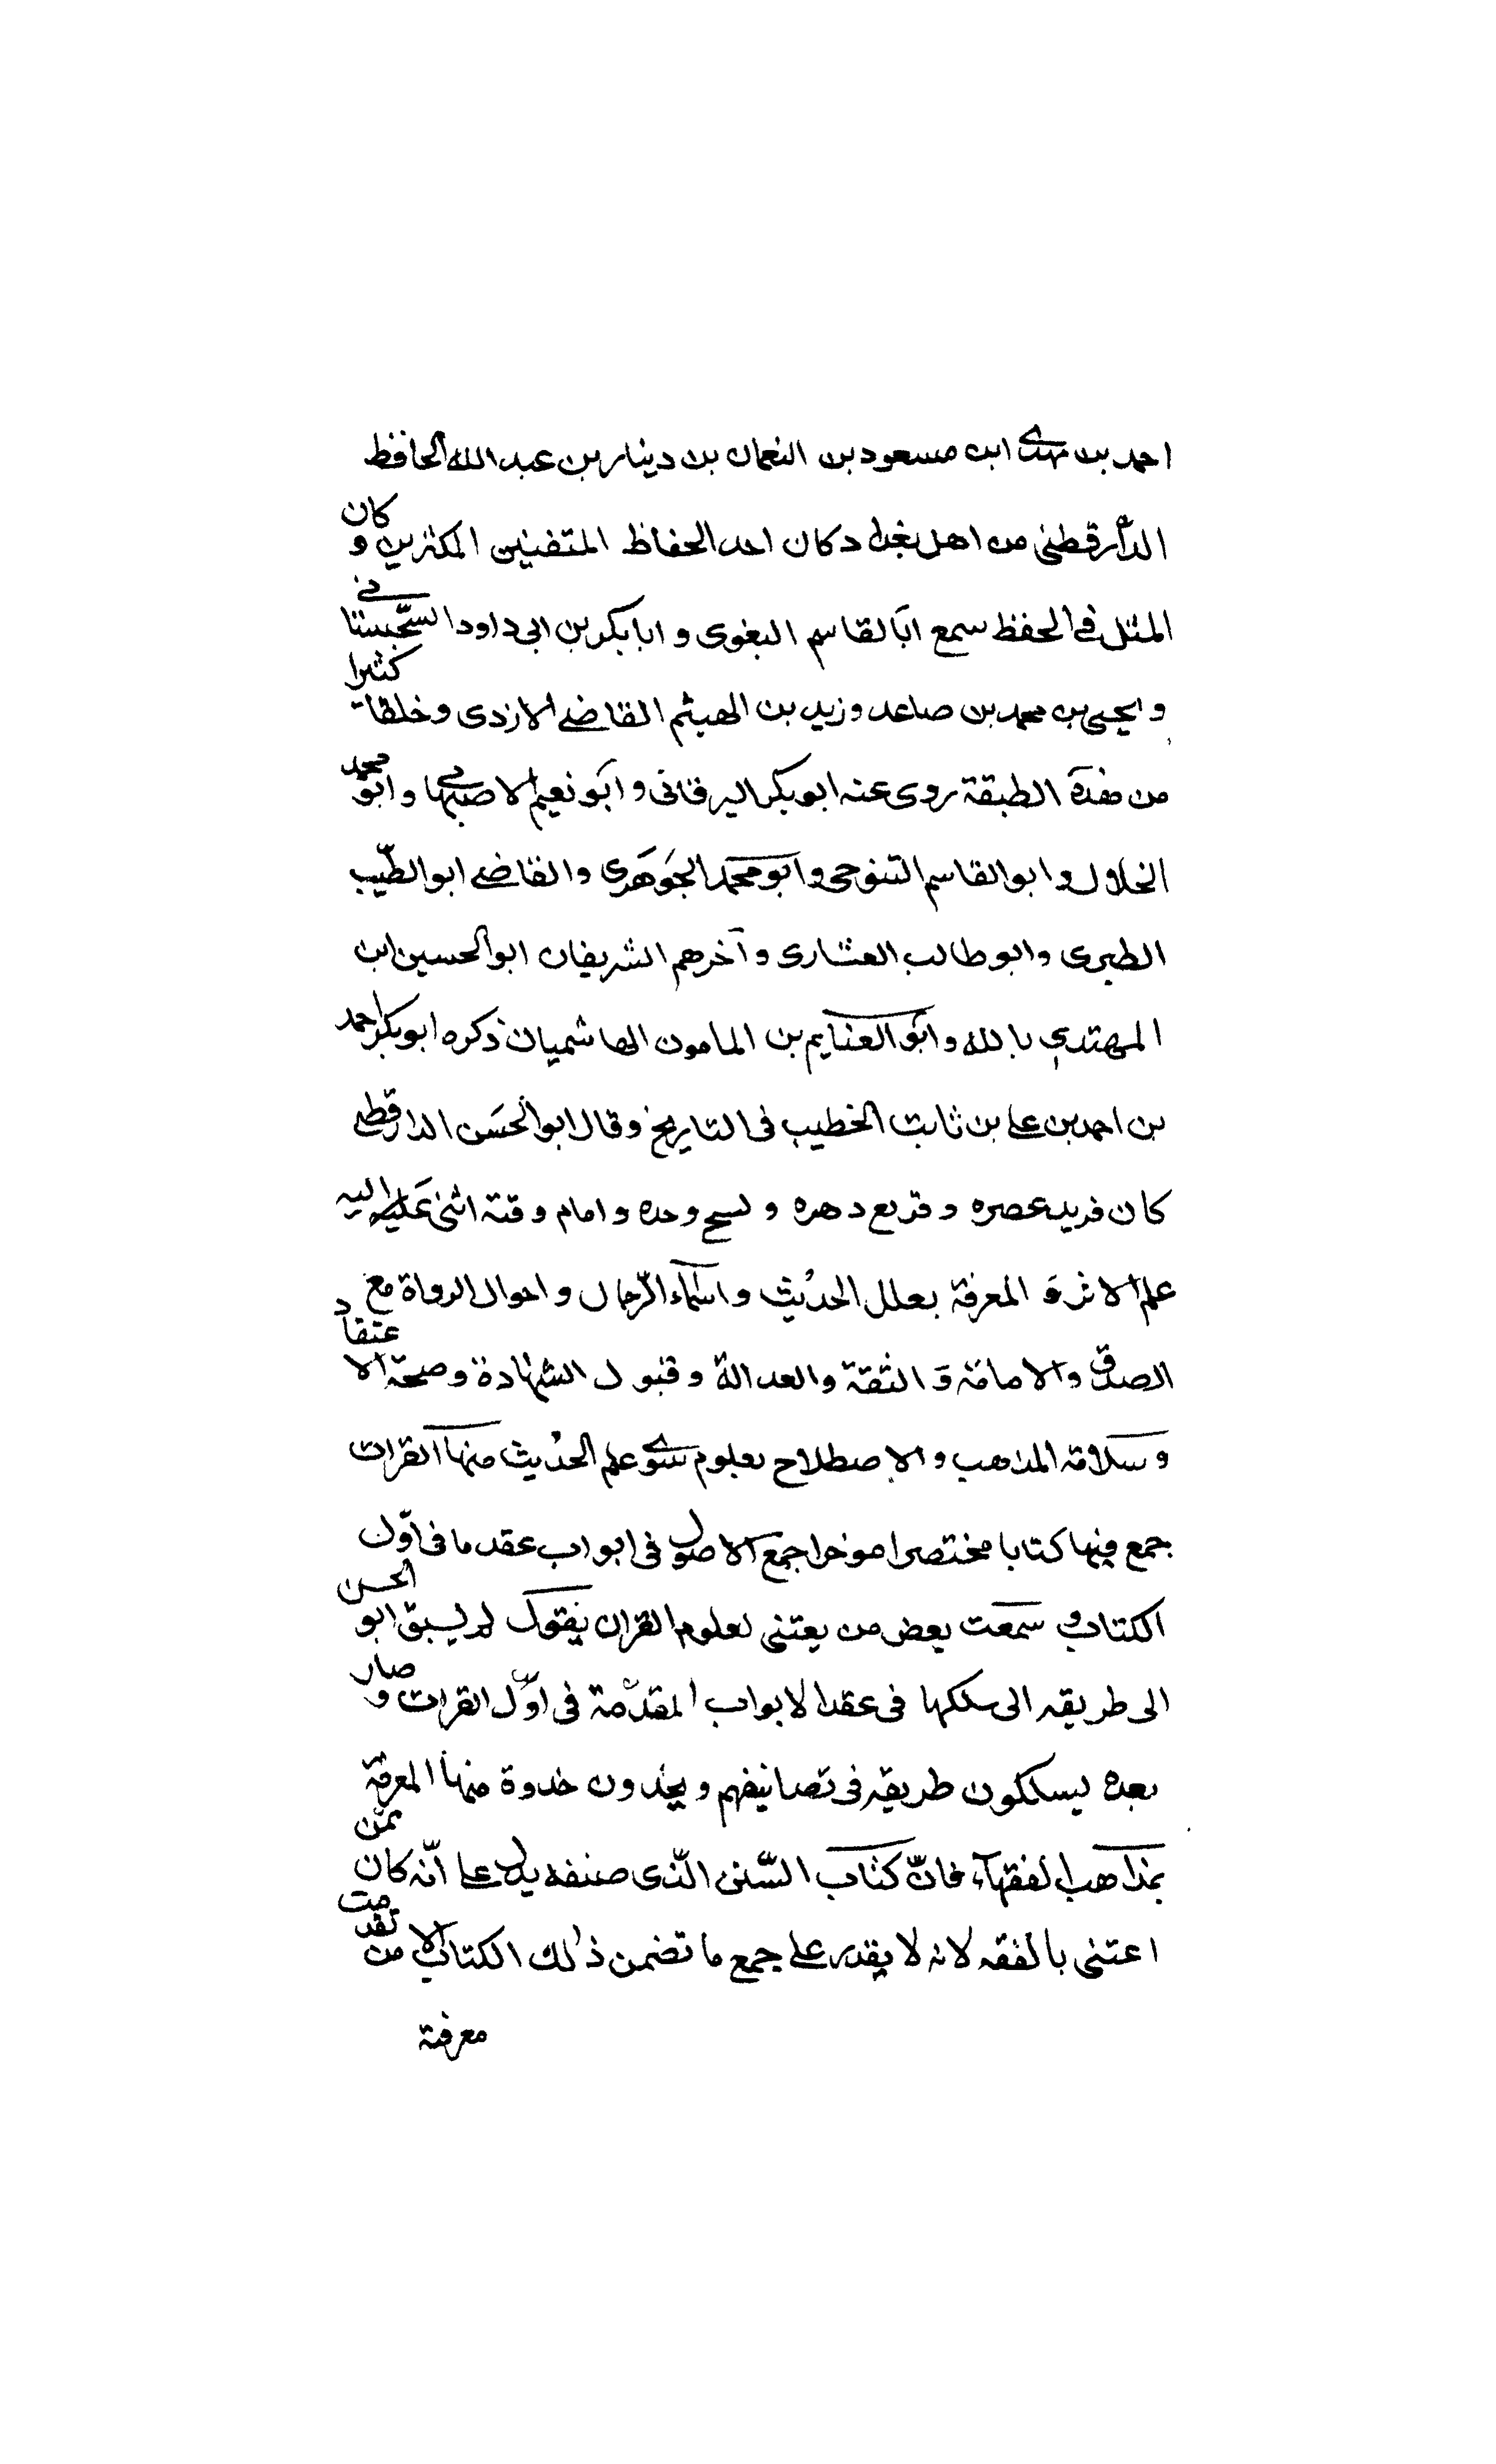 احمد بن مهدي ابن مسعود بن النعمان بن دينار بن عبد الله الحافظ
الدارقطنى من اهل بغداد كان احد الحفاظ المتفنين المكثرين و كان
المثل في الحفظ سمع ابَا لقاسم البغوى و ابا بكر بن ابى داود السّجستانى
و يحيى بن محمد بن صاعد و زيد بن الهيثم القاضي الازدى و خلقا كثيرا
من هذه الطبقة روى عنه ابو بكر البرقانى و ابَو نعيم الاصبهاني و ابو محمد
الخلال و ابو القاسم التنوحى و ابو محمد الجَوهَرى و القاضي ابو الطيّب
الطبرى و ابو طالب العشارى و آخرهم الشريفان ابو الحسين ابن
المهتدي بالله و ابو الغنايم بن المامون الهاشميان ذكره ابو بكر احمد
بن احمد بن علي بن ثابت الخطيب فى التاريخ و قال ابو الحسَن الدارقطني
كان فريد عصره و قريع دهره و نسيج وحده و امام وقتة اثنى عَليه اليه
علم الاثر وَ المعرفة بعلل الحديث و اسماء الرّجال و احوال الرواة مع
الصدق و الامانة وَ الثقة و العدالة و قبول الشهادة و صحّة الاعتقاد
و سلامة المذهب و الاصطلاح بعلوم سوي علم الحديث منها القرات
جمع فيها كتابا مختصرا موخرا جمع الاصول فى ابواب عقد ما فى اوّل
الكتاب و سمَعت بعض من يعتنى بعلوم القران يقول لم يسبق ابو الحسن
الى طريقه الى سلكها فى عقد الابواب المقدّمة فى اوّل القرات و صار
بعده يسلكون طريقه فى تصانيفهم و يحذون خذوة منها المعرفة
بمذاهب الفقهآء فانّ كتاب السّنن الّذى صنفه يدل علي انّه كان ممّن
اعتنى بالفقه لانه لا يقدر علي جمع ما تضمن ذلك الكتاب الا من تقدمت
معرفتة